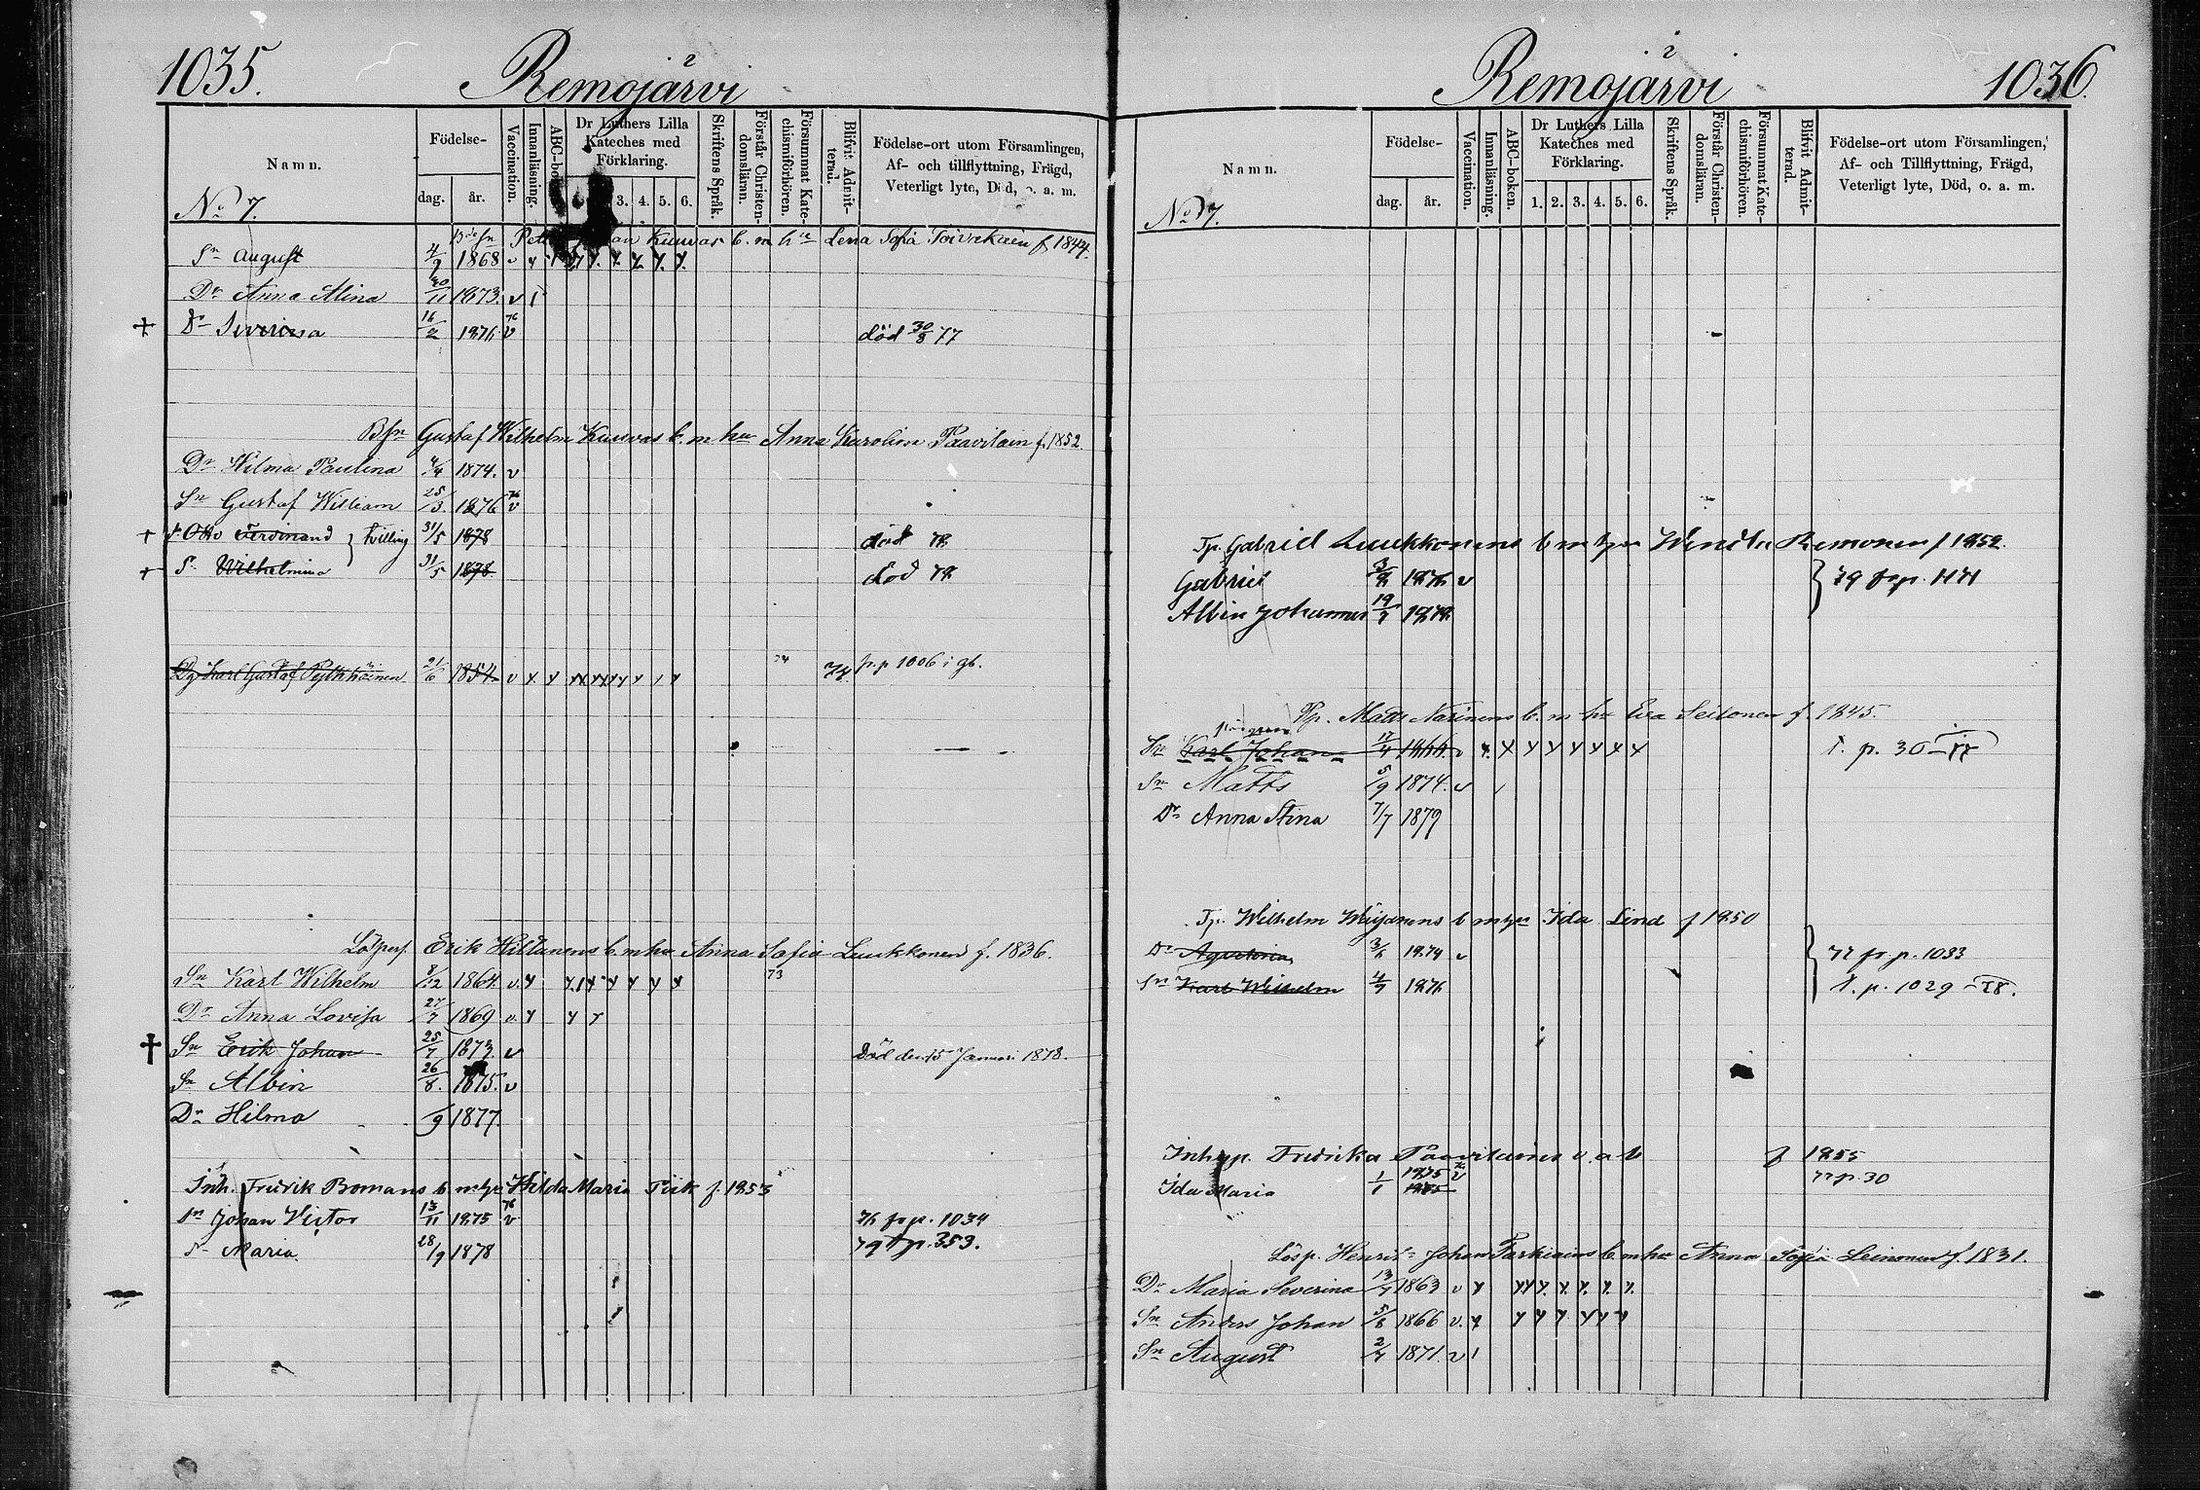 1035.
2
Remojärvi
Namn.
Födelse-
dag.
år.
Vaccination.
Innanläsning.
ABC-bo
Dr Luthers Lilla
Kateches med
Förklaring.
3. 4. 5. 6.
Skriftens Språk.
Förstår Christen-
domsläran.
Försummat Kate-
chismiförhören.
Blifvit Admit-
terad.
Födelse-ort utom Församlingen,
Af- och tillflyttning, Frägd,
Veterligt lyte, Död, o. a. m.
No 7.
Kuuvas b. m hu Lena Sofia Toivakain f 1844.
Sn August 4/9 1868 v
Dr Anna Alina 11 1873. v
Dr Severina 16/2 1876. 76 v död 30/8 77
Bfn Gustaf Wilhelm Kuuvas b. m hu Anna Karolina Paavilain f. 1852.
Dr Hilma Paulina 4/4 1874. v
Sn Gustaf William 25/3 1876 76 v
Otto Ferdinand tvilling 31/5 1878 död 78
Wilhelmina 31/5 1878 död 78
Dg Karl Gustaf Pylkkäinen 21/6 1854 v 74 74. fr. p 1006 i gb.
Löspers. Erik Hiltunens b. m hu Anna Sofia Luukkonen f. 1836.
Sn Karl Wilhelm 8/12 1864. v. 73
Dr Anna Lovisa 27/7 1869 v.
Sn Erik Johan 25/7 1873. v Död den 15 Januari 1878.
Sn Albin 26/8. 1875. v
Dr Hilma /9 1877.
Inh. Fredrik Bomans b m hu Hilda Maria Piik f. 1853
Sn Johan Victor 13/11 1875 76 v 76 fr p. 1034
Maria 28/9 1878 79 t p. 353.
2
Remojärvi
1036.
Namn.
Födelse-
dag.
år.
Vaccination.
Innanläsning.
ABC-boken.
Dr Luthers Lilla
Kateches med
Förklaring.
1. 2. 3. 4. 5. 6.
Skriftens Språk.
Förstår Christen-
domsläran.
Försummat Kate-
chismiförhören.
Blifvit Admit-
terad.
Födelse-ort utom Församlingen,
Af- och Tillflyttning, Frägd,
Veterligt lyte, Död, o. a. m.
No 7.
Tp. Gabriel Luukkonens b m hu Wendla Remonen f 1852.
Gabriel 1876 v 79 fr p.
Albin Johannes 19 1878
Tp. Matts Narinens b. m hu Eva Seilonen f. 1845.
Sn Karl Johan 17/4 v t. p. 30 - 77
Sn Matts 5/9 1874. v
Dr Anna Stina 7/7 1879
Tp. Wilhelm b m hu Ida Lind f 1850
Dr 1874 v 77 fr p. 1033
Sn Karl Wilhelm 4/7 1876 t. p. 1029 - 78.
Inhyp. Fredrika Paavilainen f 1855
Ida Maria 1/1 1875 v 77 p. 30
Lösp. Henrik Johan Tarkiains b. m hu Anna Sofia Leinonen f. 1831.
Dr Maria Severina 13/7 1863 v
Sn Anders Johan 5/8 1866 v.
Sn August 2/7 1871. v